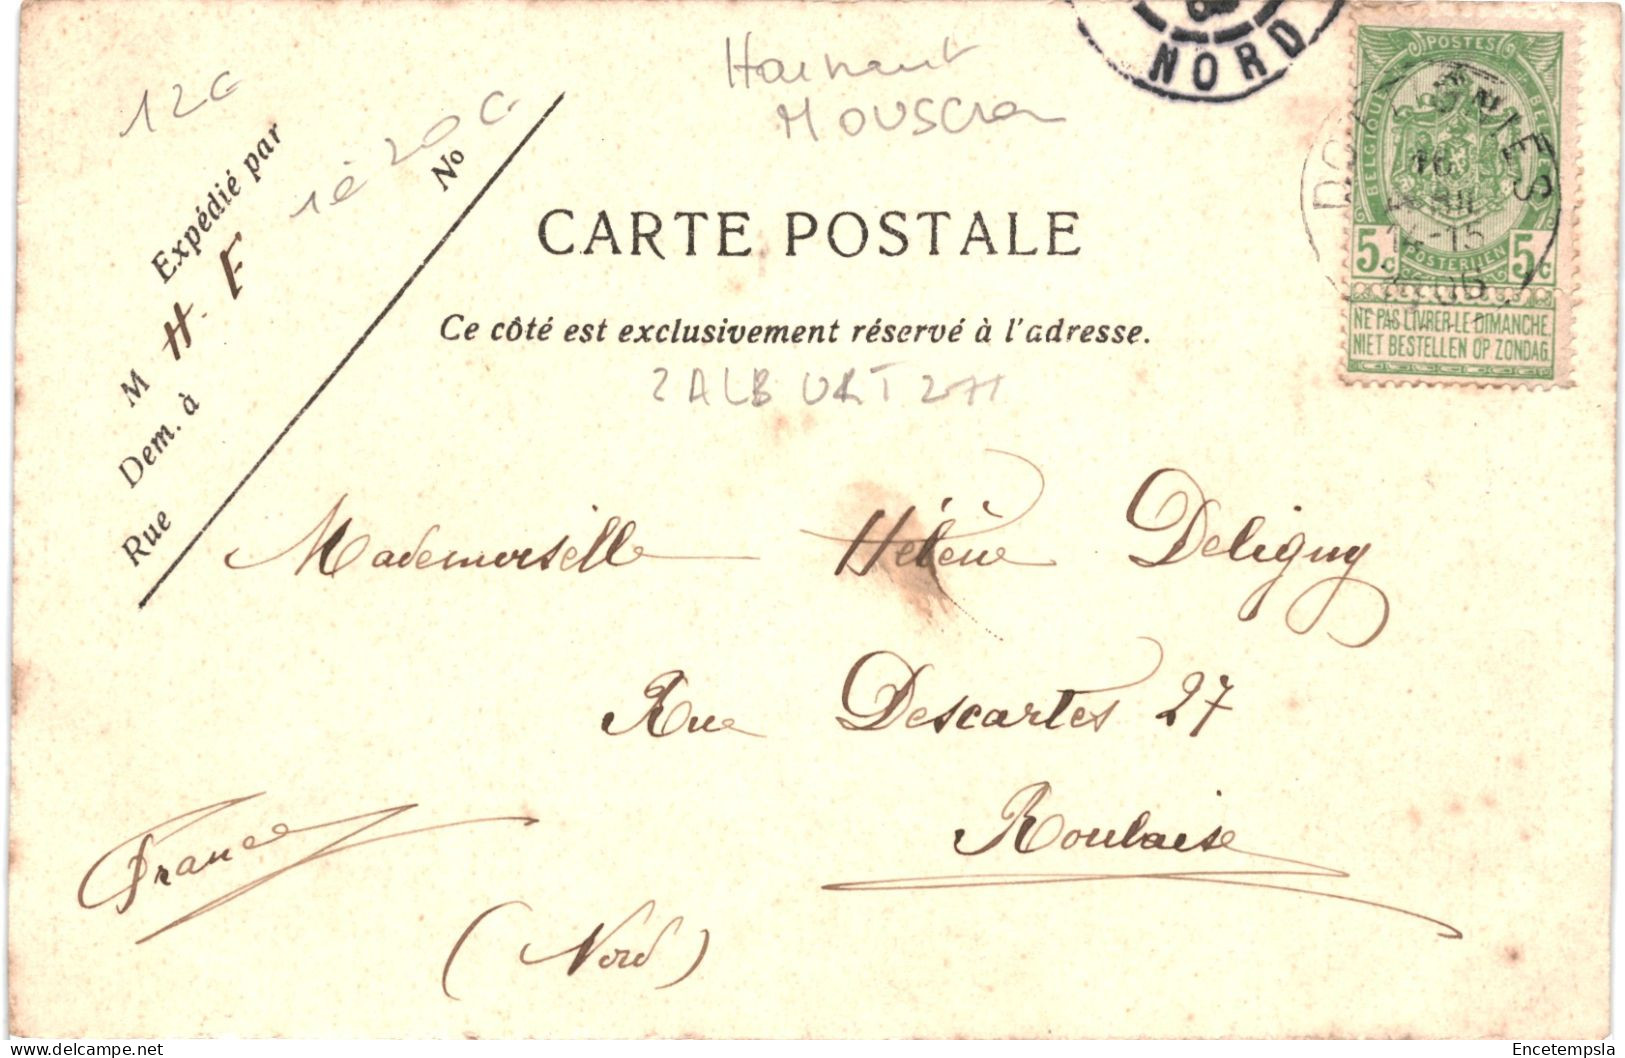 NORD
POSTES
BELGIQUE
BELGIE
16
AVRIL
14-15
5c POSTERIJEN 5c
NE PAS LIVRER LE DIMANCHE
NIET BESTELLEN OP ZONDAG
12c
1è 20c
Hainaut
Mouscron
Expédié par
No
M H. F
Dem. à
Rue
CARTE POSTALE
Ce côté est exclusivement réservé à l'adresse.
Mademoiselle Hélène Deligny
Rue Descartes 27
Roubaix
France
(Nord)
Encetempsla